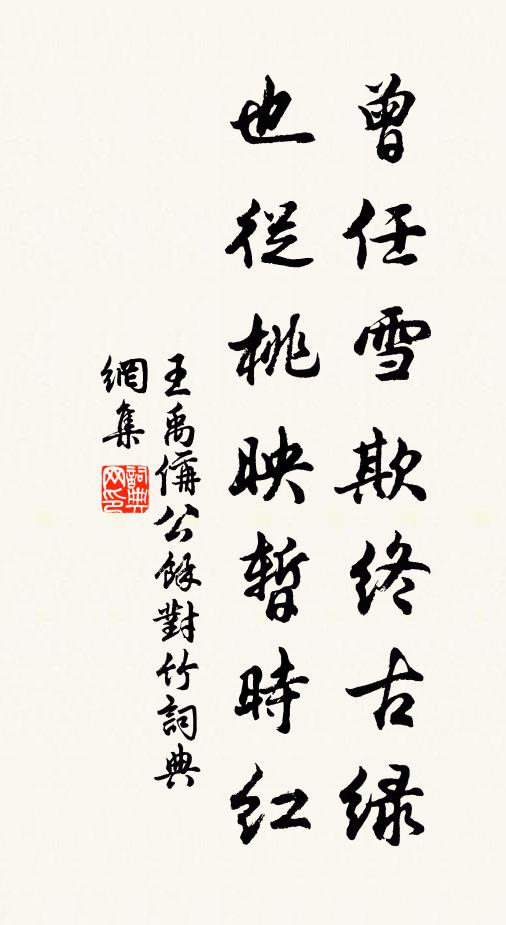 曾任雪欺终古绿
也從桃映暫時紅
王禹偁公餘對竹詞典
網集
詞典
网印